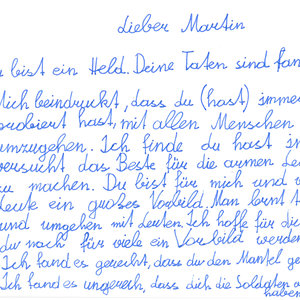 Lieber Martin
u bist ein Held. Deine Taten sind fan
Mich beindruckt, dass du (hast) imme
probiert hast, mit allen Menschen
umzugehen. Ich finde du hast im
versucht das Beste für die armen Le
zu machen. Du bist für mich und v
Leute ein großes Vorbild. Man lernt t
und umgehen mit Leuten. Ich hoffe für dic
du noch für viele ein Vorbild werden
Ich fand es gerecht, dass du den Mantel ge
Ich fand es ungerech, dass dich die Soldaten a
haben